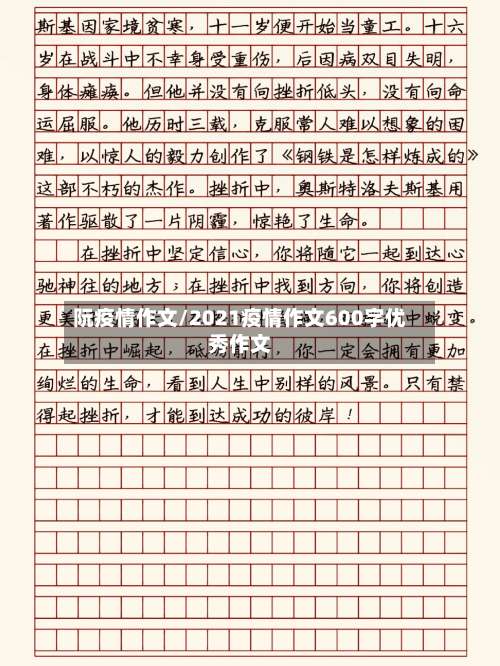 斯基因家境贫寒，十一岁便开始当童工。十六
岁在战斗中不幸身受重伤，后因病双目失明，
身体瘫痪。但他并没有向挫折低头，没有向命
运屈服。他历时三载，克服常人难以想象的困
难，以惊人的毅力创作了《钢铁是怎样炼成的》
这部不朽的杰作。挫折中，奥斯特洛夫斯基用
著作驱散了一片阴霾，惊艳了生命。
在挫折中坚定信心，你将随它一起到达心
驰神往的地方；在挫折中找到方向，你将创造
更美 中蜕变。
阮疫情作文/2021疫情作文600字优
秀作文
在挫折中崛起，砥 你一定会拥有更加
绚烂的生命，看到人生中别样的风景。只有禁
得起挫折，才能到达成功的彼岸！